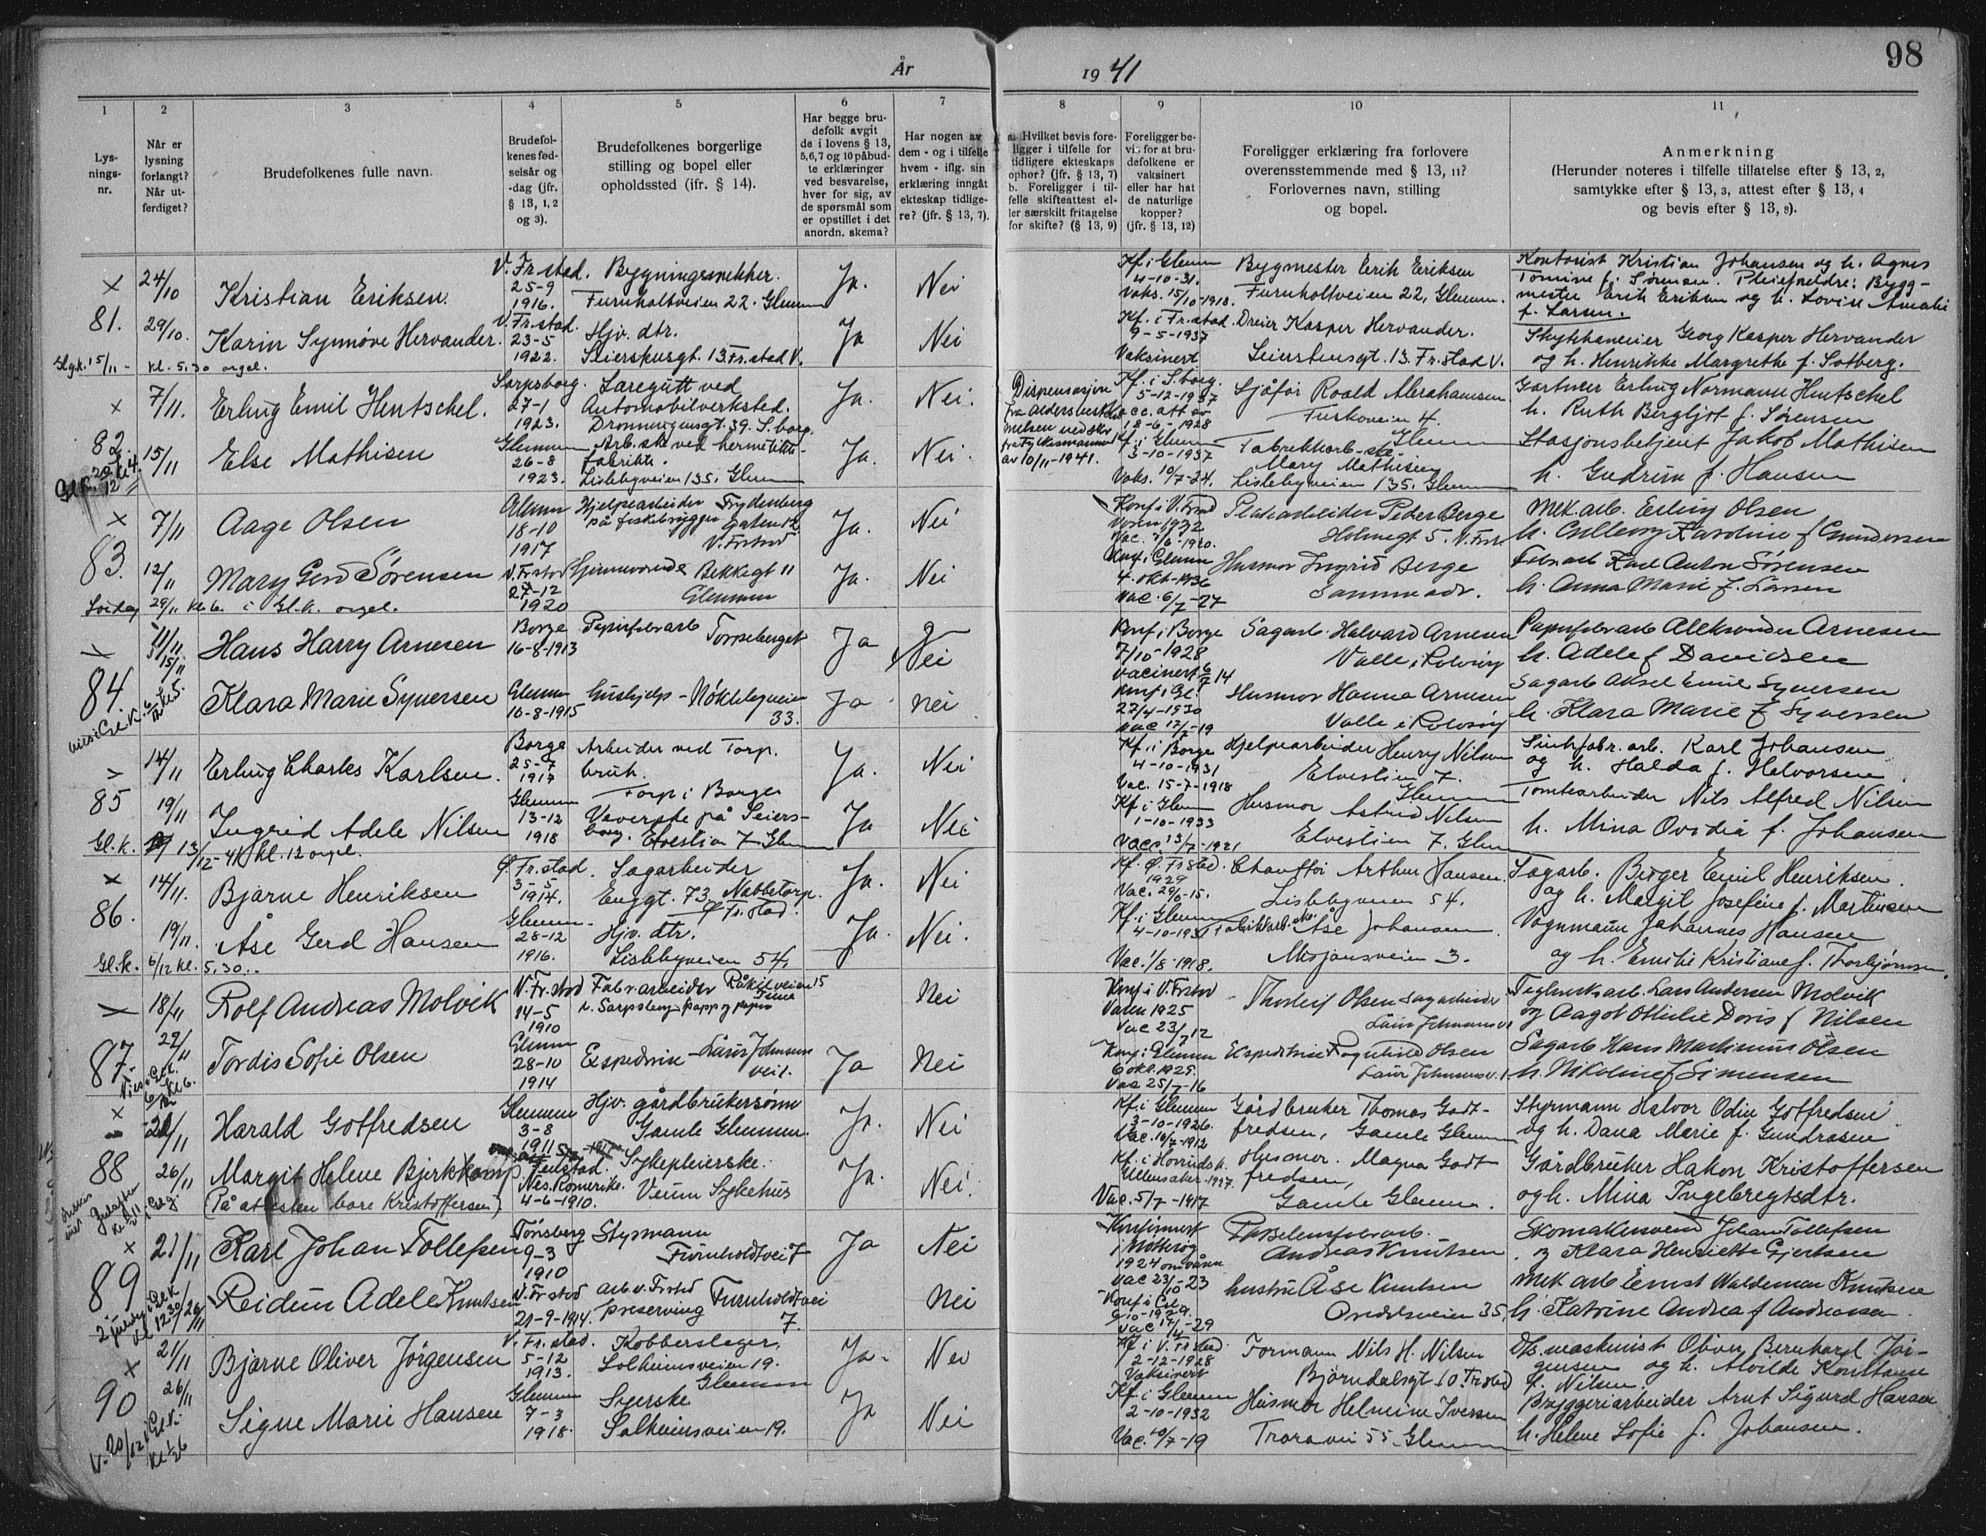 98
År 1941
1
2
3
4
5
6
7
8
9
10
11
Lys-
nings-
nr.
Når er
lysning
forlangt?
Når ut-
ferdiget?
Brudefolkenes fulle navn.
Brudefol-
kenes fød-
selsår og
-dag (jfr.
§ 13, 1, 2
og 3).
Brudefolkenes borgerlige
stilling og bopel eller
opholdssted (ifr. § 14).
Har begge bru-
defolk avgit
de i lovens § 13,
5,6,7 og 10 påbud-
te erklæringer
ved besvarelse,
hver for sig, av
de spørsmål som
er opstillet i det
anordn. skema?
Har nogen av
dem - og i tilfelle
hvem - iflg. sin
erklæring inngått
ekteskap tidlige-
re? (jfr. § 13, 7).
a. Hvilket bevis fore-
ligger i tilfelle for
tidligere ekteskaps
ophør? (jfr. § 13, 7)
b. Foreligger i til-
felle skifteattest el-
ler særskilt fritagelse
for skifte? (§ 13, 9)
Foreligger be-
vis for at bru-
defolkene er
vaksinert
eller har hat
de naturlige
kopper?
(jfr. § 13, 12)
Foreligger erklæring fra forlovere
overensstemmende med § 13, 11?
Forlovernes navn, stilling
og bopel.
Anmerkning
(Herunder noteres i tilfelle tillatelse efter § 13, 2,
samtykke efter § 13, 3, attest efter § 13, 4
og bevis efter § 13, 9).
81.
24/10
Kristian Eriksen.
V. Fr.stad.
25-9
1916.
Bygningssnekker.
Furuholtveien 22. Glemm
Ja.
Nei
Kf. i Glemm
4-10-31.
Vaks. 15/10-1918.
Bygmester Erik Eriksen
Furuholtveien 22, Glemm.
Kontorist Kristian Johansen og h. Agnes
Tomine f. Sørensen. Pleieforeldre: Bygg-
mester Erik Eriksen og h. Lovise Amalie
f. Larsen.
29/10.
Karin Synnøve Hervander.
V. Fr.stad.
23-5
1922.
Hjv. dtr.
Seierstensgt. 13. Fr.stad V.
Ja
Nei
Kf. i Fr.stad.
9-5-1937
Vaksinert
Dreier Kasper Hervander.
Seierstensgt. 13. Fr.stad V.
Georg Kasper Hervander
og h. Henrikke Margrethe f. Solberg.
Gl.k. 15/11 - kl. 5.30 orgel.
82
7/11.
Erling Emil Hentschel.
Sarpsborg.
27-1
1923.
Læregutt ved
Automobilverksted.
Dronningensgt. 39. S.borg.
Ja.
Nei.
Dispensasjon
fra aldersbestem
melsen ved skr.
fra Fylkesmannen
av 10/11-1941.
Kf. i S.borg.
5-12-1937
acc. att. av
18-6-1928
Sjåfør Roald Abrahamsen
Glemm
Gartner Erling Normann Hentschel
h. Ruth Bergljot f. Sørensen
15/11
Else Mathisen
Glemm
26-8
1923.
Arb.ske ved hermetikk-
fabrikk.
Lislebyveien 135. Glemm
Ja.
Nei.
Kf. i Glemm
3-10-1937
Vaks. 10/7-24.
Fabrikkarb.-ske
Mary Mathisen
Lislebyveien 135. Glemm
Stasjonsbetjent Jakob Mathisen
h. Gudrun f. Hansen
83.
7/11
Aage Olsen
Glemm
18-10
1917
Hjelpearbeider
på fiskebrygge
Frydenberg
gaten 12
V. Frstad
Ja.
Nei
Konf i V. Frstad
våren 1932
Peder Berge
Holmegt 5. V. Frst.
Mek.arb. Erling Olsen
h. Karoline f Gundersen
12/11
Mary Gerd Sørensen
V. Frstad
27-12
1920
Hjemmeværende
Bekkegt 11
Glemmen
Ja.
Nei
Konf i Glemm
4. okt-1936
Vac. 6/7-27
Husmor Ingrid Berge
Samme adr.
Fabr.arb Karl Anton Sørensen
h. Anna Marie f. Larsen
Lørdag 29/11 kl 6. i Gl.k. orgel.
84
11/11
15/11
Hans Harry Arnesen
Borge
16-8-1913
Papirfabr.arb
Torpeberget
Ja
Nei
Konf i Borge
7/10-1928
Vacinert 6/7 14
Sagarb. Halvard Arnesen
Valle i Rolvsøy
Papirfabr.arb Aleksander Arnesen
h. Adele f Davidsen
Klara Marie Syversen
Glemm
10-8-1915
Hushjelp - Nøklebyveien
33.
Ja
nei
konf i Gl.
27/4-1930
Vac 12/7-19
Husmor Hanna Arnesen
Valle i Rolvsøy
Sagarb Aksel Emil Syversen
h. Klara Marie f Syversen
85
14/11
Erling Charles Karlsen.
Borge
25-7
1917
Arbeider ved Torp.
bruk.
Torp i Borge
Ja.
Nei
Kf. i Borge
4-10-1931
Vac. 15-7-1918
Hjelpearbeider Henry Nilsen
Elvestien 7.
Glemm
Karl Johansen
og h. Halda f. Halvorsen
19/11
Ingrid Adele Nilsen
Glemm
13-12
1918
Veverske på Seiers-
borg. Elvestien 7 Glemm
Ja
Nei
Kf. i Glemm
1-10-1933
Vacc. 13/7-1921
Husmor Astrid Nilsen
Elvestien 7. Glemm
Tomtearbeider Nils Alfred Nilsen
h. Mina Ovidia f. Johansen
Gl.k. 13/12-41 kl. 12 orgel.
86.
14/11.
Bjarne Henriksen
Ø. Fr.stad.
3-5
1914.
Sagarbeider
Enggt. 73. Nabbetorp.
Ø Fr.stad.
Ja.
Nei
Kf. Ø. Fr.stad.
1929
Vac. 29/6-15.
Chauffør Arthur Hansen.
Lislebyveien 54.
Sagarb. Birger Emil Henriksen.
og h. Margit Josefine f. Martinsen
19/11.
Åse Gerd Hansen
Glemm.
28-12
1916.
Hjv. dtr.
Lislebyveien 54.
Ja.
Nei.
Kf. i Glemm
4-10-1931
Vac. 1/8-1918.
Fabrikkarb. Åse Johansen.
Misjonsveien 3.
Vognmann Johannes Hansen
og h. Emilie Kristiane f. Thorbjørnsen.
Gl.k. 6/12 kl. 5.30.
87.
18/11
Rolf Andreas Molvik
V. Fr.stad
14-5
1910
Fabr.arbeider
Råkilveien 15
Nei
Konf i V. Frstad
Våren 1925
Vac 23/7 12
Thorleif Olsen Sagarbeider
Teglverksarb. Lars Andersen Molvik
og Aagot Ottilie Doris f Nilsen
22/11
Tordis Sofie Olsen
Glemm
28-10
1914
Expeditrise - Laur Johnsens
vei 1.
Ja
Nei
Konf i Glemm
Vac 25/7-16
Expeditrise Ragnhild Olsen
Sagarb Hans Martinius Olsen
h. Nikoline f Simensen
88
Harald Gotfredsen
Glemm
3-8
1911
Hjv. gårdbrukersønn
Gamle Glemmen.
Ja.
Nei
Kf. i Glemm
3-10-1926.
Vac. 10/7-1912
Gårdbruker Thomas Godt-
fredsen, Gamle Glemm
Styrmann Halvor Odin Gotfredsen
og h. Dana Marie f. Gundrosen
26/11
Margit Helene Bjerkkamp
(På attesten bare Kristoffersen)
Nes. Romerike.
4-6-1910.
Sykepleierske.
Veum Sykehus
Ja.
Nei.
Kf. i Hovindsk.
Ullensaker. 1927.
Vac. 5/7-1917
Husmor. Magna Godt
fredsen,
Gamle Glemm.
Gårdbruker Hakon Kristoffersen
og h. Mina Ingebregtsdtr.
89
21/11
Karl Johan Tollefsen
Tønsberg
9-3
1910
Styrmann
Furuholdtvei 7
Ja
Nei
Konfirmert
1924
Vac 23/10-23
Andreas Knutsen
Skomakersvend Johan Tollefsen
og Klara Henriette Gjertsen
26/11
Reidun Adele Knutsen
V. Fr stad
21-9-1914
arb. v. Frstad
preserving
Furuholdtvei
7.
Nei
Konf i Gl.
1929
Vac 17/4-29
hustru Åse Knutsen
35,
Mek arb Ernst Waldemar Knutsen
h. Katrine Andrea f Andreassen
90
21/11
Bjarne Oliver Jörgensen
V. Fr.stad.
5-12
1913.
Kobberslager.
Solheimsveien 19.
Glemmen
Ja-
Nei
Kf i V. Frstad
2-12-1928
Vaksinert
Formann Nils H. Nilsen
Bjørndalsgt 10. Frstad
maskinist Oliver Bernhard Jör-
gensen og h. Alvilde Konstanse
f. Nilsen.
26/11
Signe Marie Hansen
Glemm
7-3
1918.
Syerske
Solheimsveien 19.
Ja
Nei
Kf. i Glemm
2-10-1932
Vac. 10/7-19
Husmor Helmine Iversen
Traravei 55. Glemm
Bryggeriarbeider Arnt Sigurd Hansen
h. Helene Sofie f. Johansen.